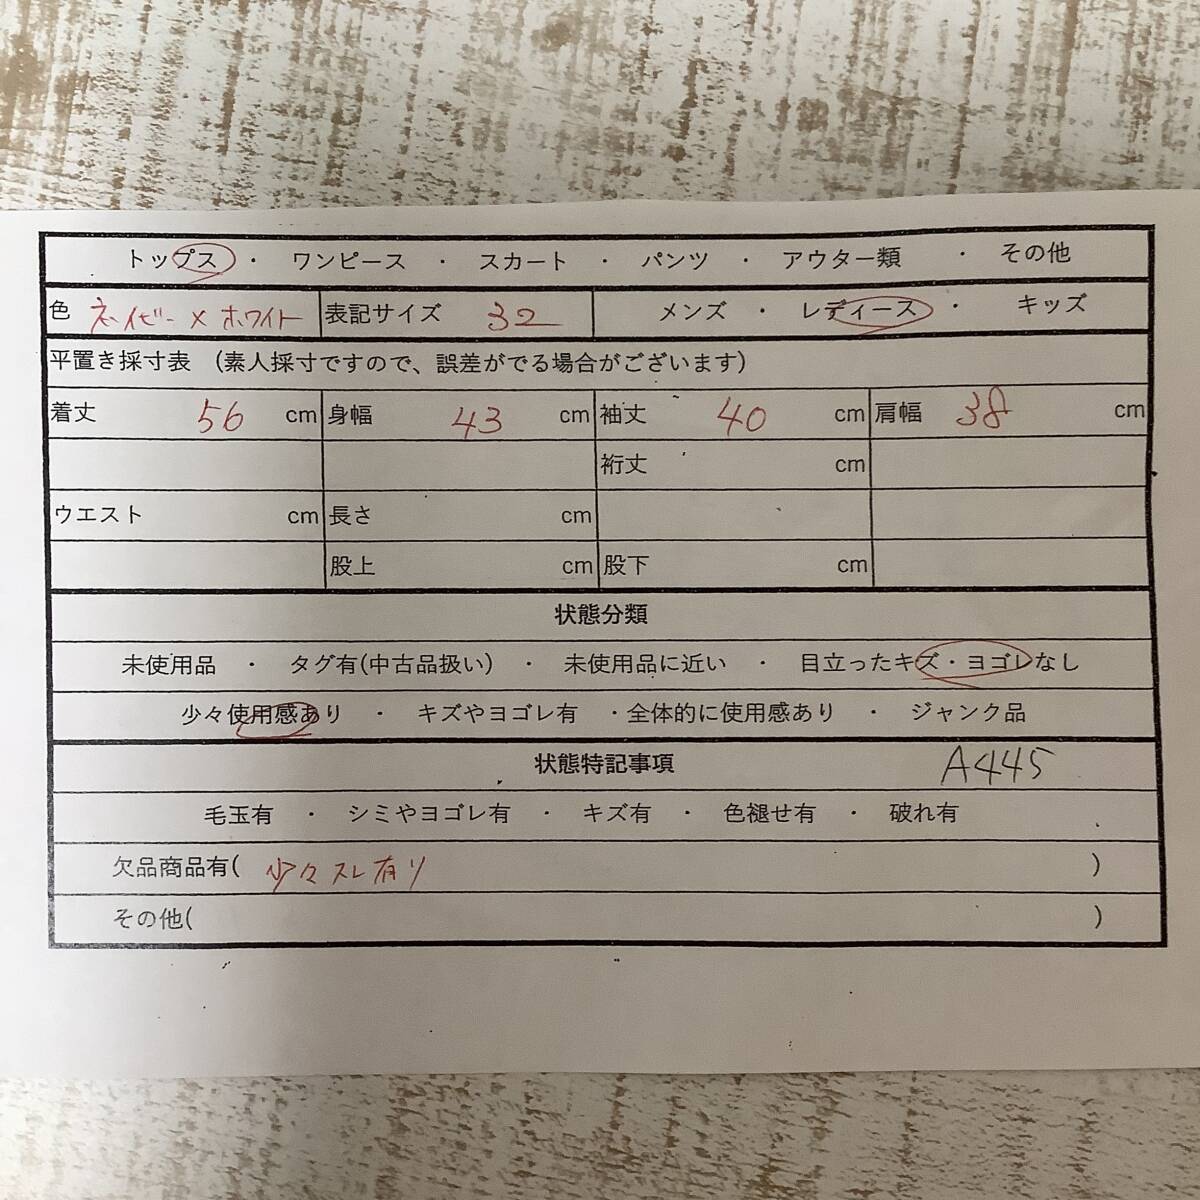 トップス ・ ワンピース ・ スカート ・ パンツ ・ アウター類 ・ その他
色 ネイビー×ホワイト 表記サイズ 32 メンズ ・ レディース ・ キッズ
平置き採寸表 (素人採寸ですので、誤差がでる場合がございます)
着丈 56 cm 身幅 43 cm 袖丈 40 cm 肩幅 38 cm
裄丈 cm
ウエスト cm 長さ cm
股上 cm 股下 cm
状態分類
未使用品 ・ タグ有(中古品扱い) ・ 未使用品に近い ・ 目立ったキズ・ヨゴレなし
少々使用感あり ・ キズやヨゴレ有 ・全体的に使用感あり ・ ジャンク品
状態特記事項 A445
毛玉有 ・ シミやヨゴレ有 ・ キズ有 ・ 色褪せ有 ・ 破れ有
欠品商品有( 少々スレ有り )
その他( )